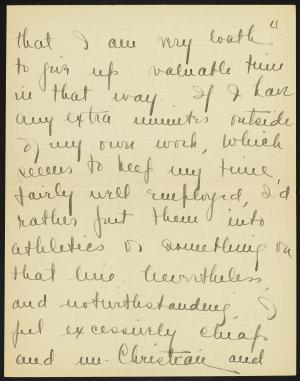 that I am very loath"
to give up valuable time
in that way. If I have
any extra minutes outside
of my own work, which
seems to keep my time
fairly well employed, I'd
rather put them into
athletics or something on
that line. Nevertheless,
and notwithstanding, I
feel excessively cheap
and un-Christian and